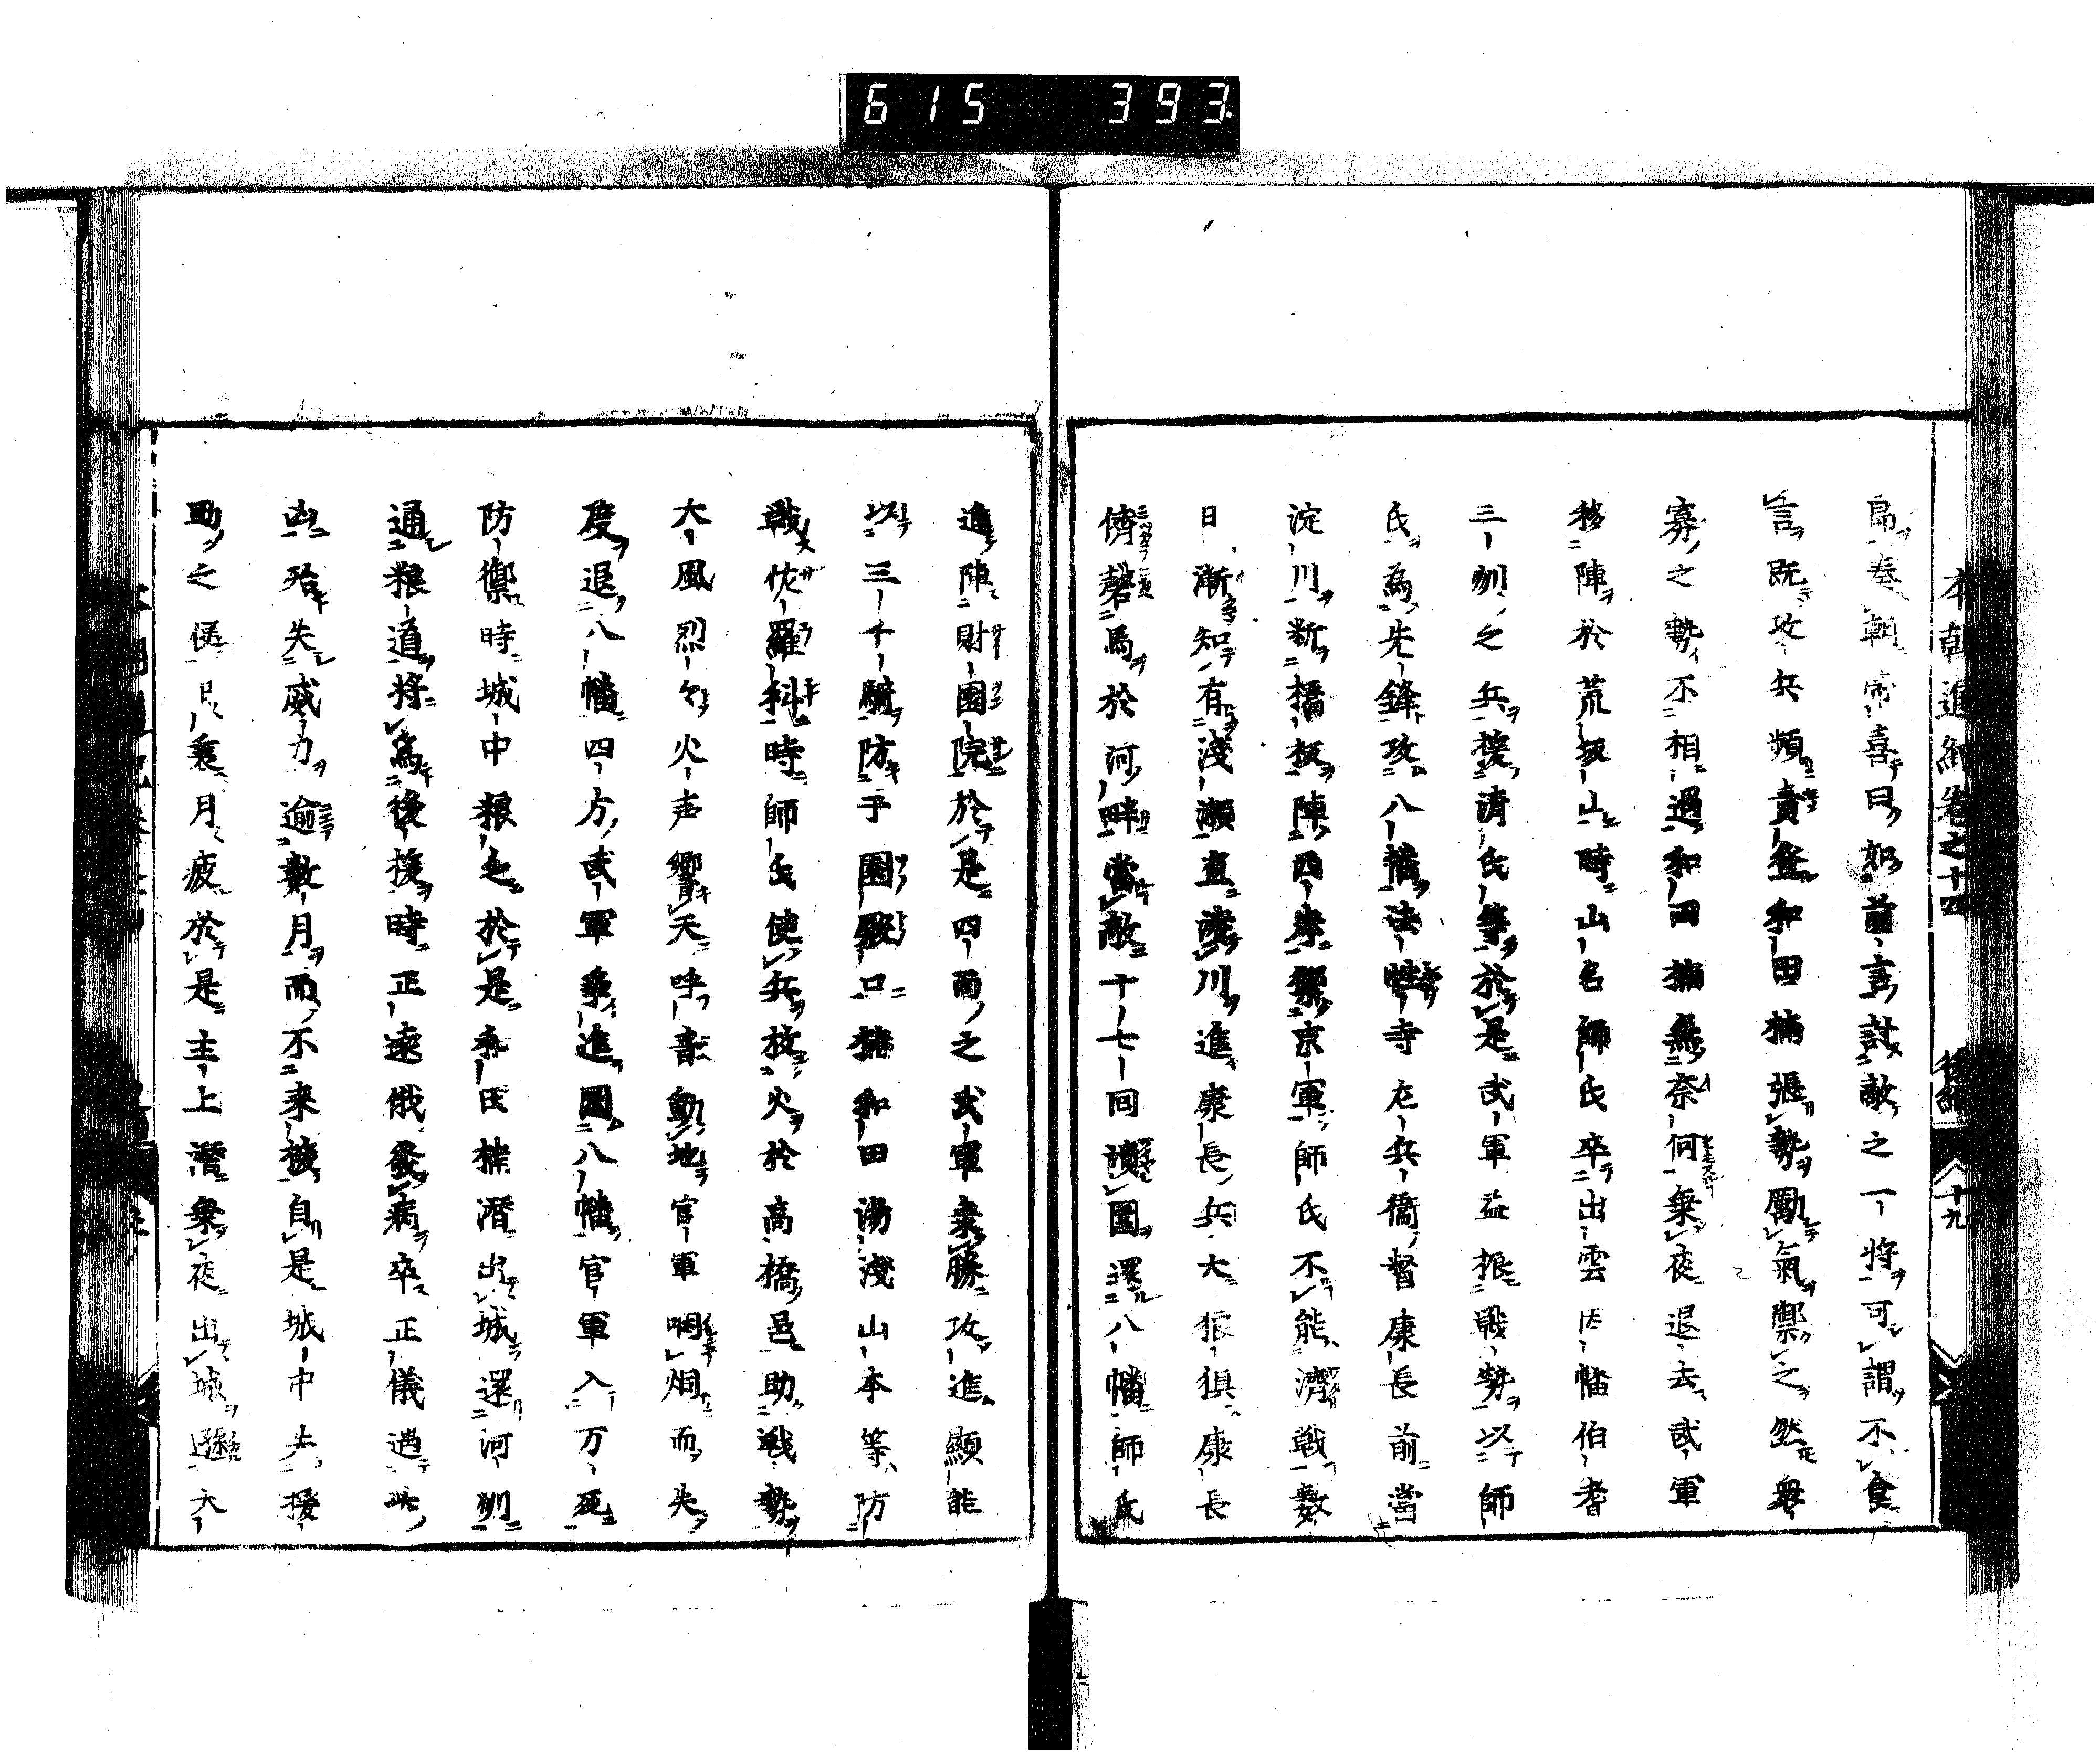 615 393
本朝通紀卷之十四 後編 十九
烏奏朝帝喜曰如前言討敵之一将可謂不食
言既攻兵頻責登和田楠張勢勵氣禦之然衆
寡之勢不相過和田楠無奈何乗夜退去武軍
移陣於荒坂山時山名師氏卒出雲因幡伯耆
三州之兵援済氏等於是武軍益振戦勢以師
氏為先鋒攻八幡法性寺左兵衛督康長前當
淀川断橋板陣四禦京軍師氏不能濟戦数
日漸知有淺瀬直渡川進康長兵大狼狽康長
儕磬馬於河畔當敵十七回還八幡師氏
進陣財園院於是四面之武軍乗勝攻進顯能
以三千騎防于園殿口楠和田湯浅山本等防
戦佐羅科時師氏使兵放火於高橋邑助戦勢
大風烈々火声響天呼音動地官軍咽烟而失
度退八幡四方武軍争進圍八幡官軍入万死
防禦時城中粮乏於是和田楠潜出城還河州
通粮道将為後援時正遠俄發病卒正儀遇此
凶殆失威力逾數月而不来援自是城中失援
助之便日衰月疲於是主上潜乗夜出城遯大